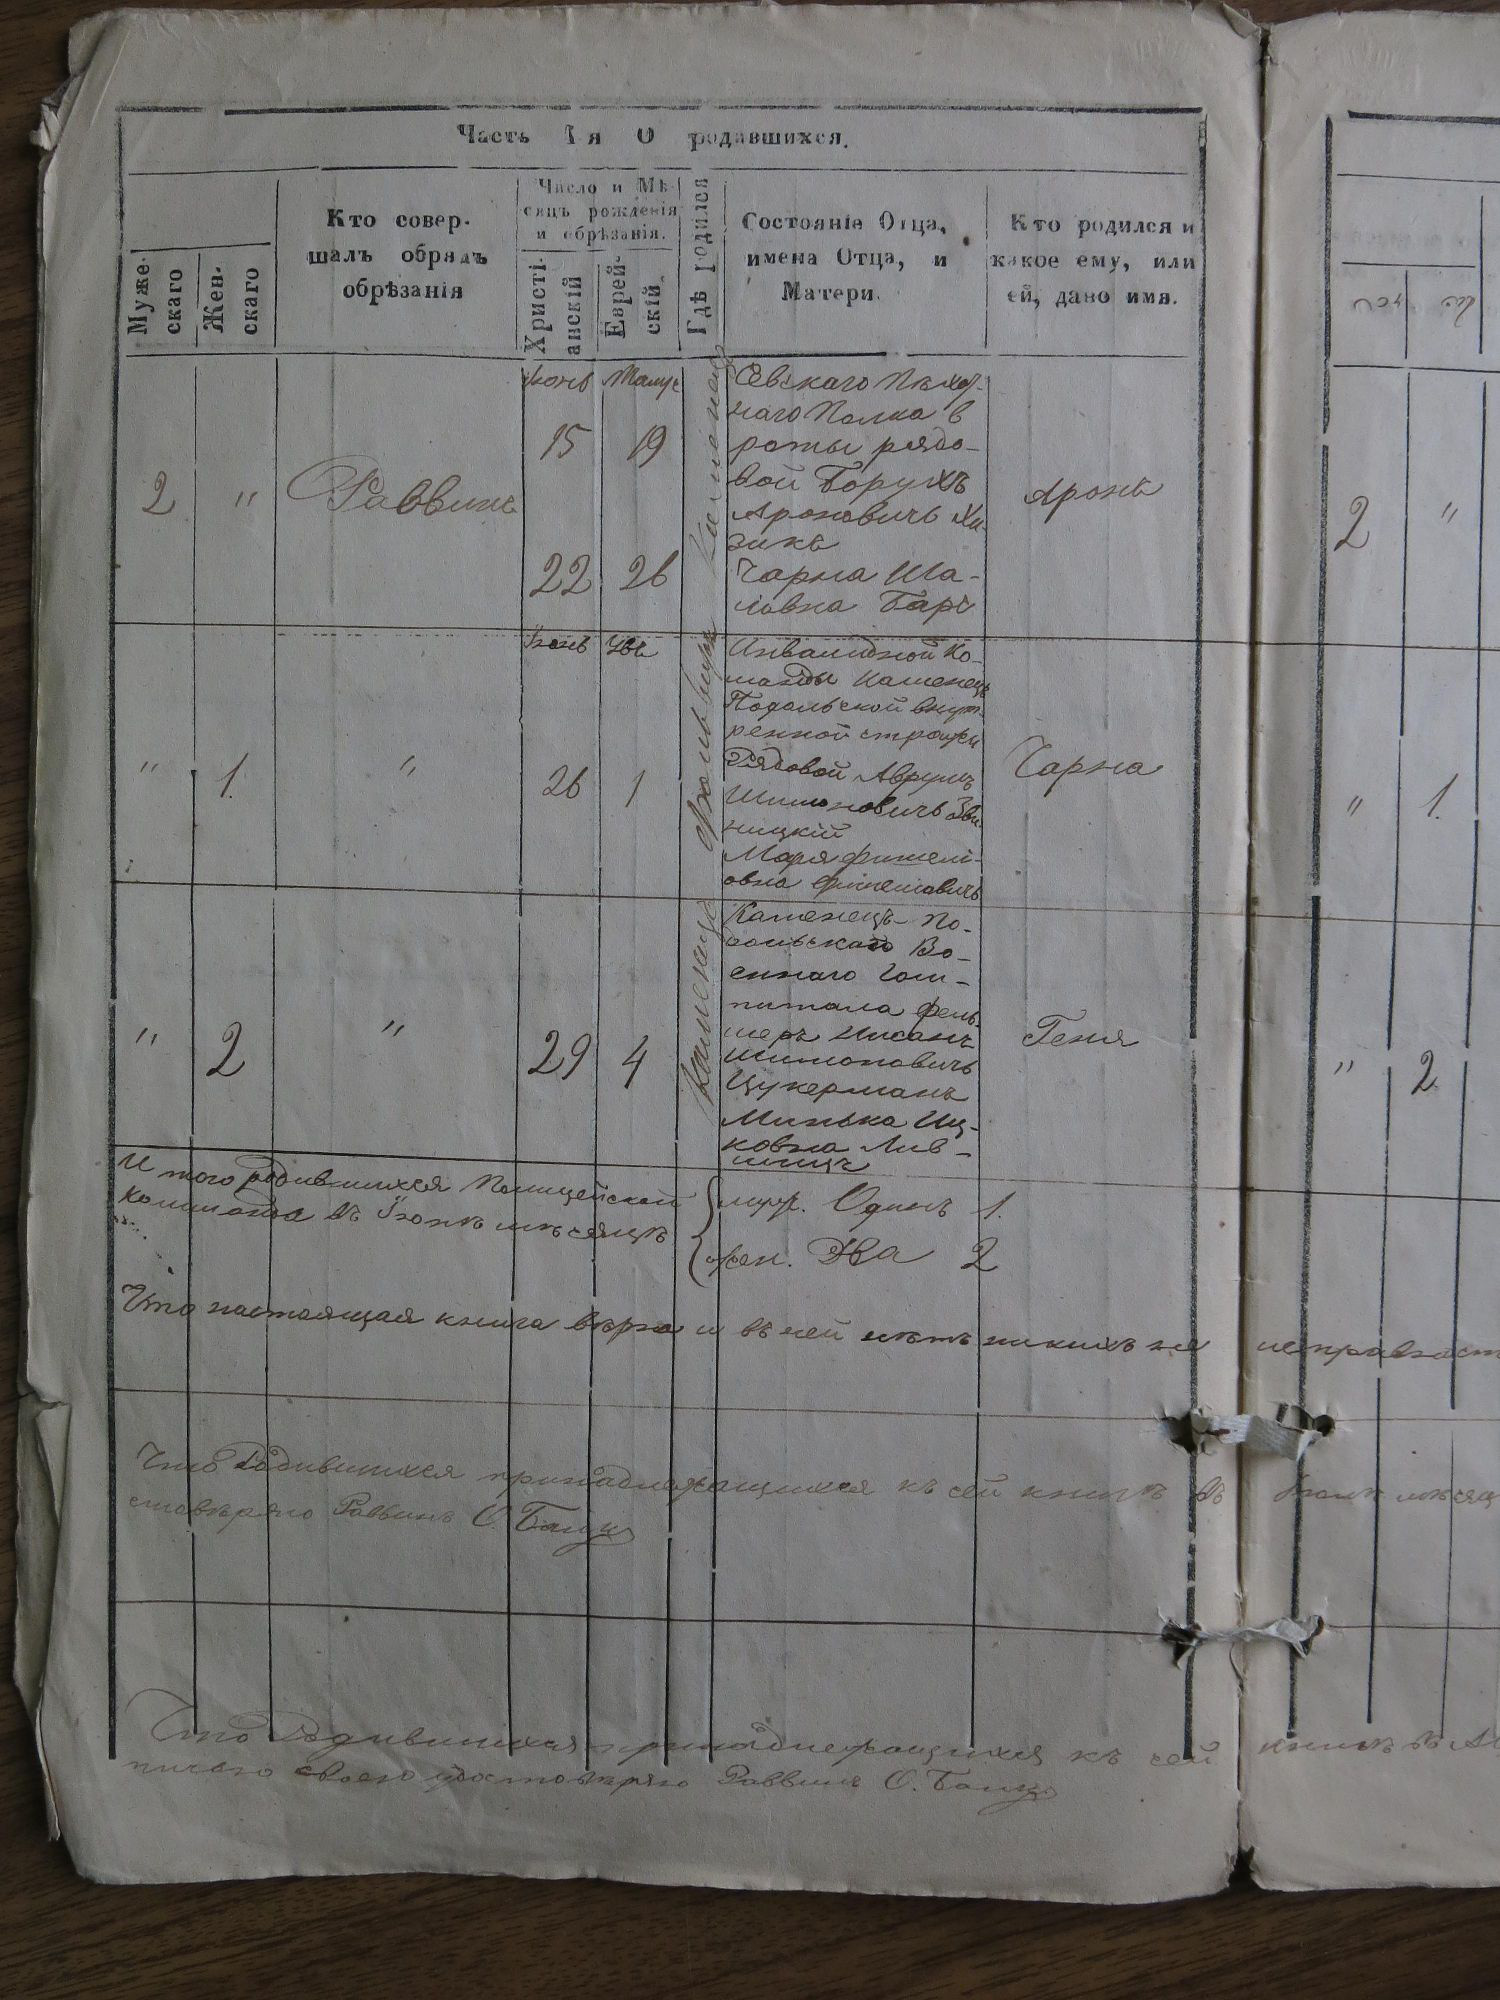 Часть I я О родавшихся.
Муже-
скаго
Жен-
скаго
Кто совер-
шалъ обрядъ
обрѣзанія
Число и Мѣ-
сяцъ рожденія
и обрѣзанія.
Христі-
анскій
Еврей-
скій.
Гдѣ родился
Состояніе Отца,
имена Отца, и
Матери.
Кто родился и
какое ему, или
ей, дано имя.
2
"
Раввинъ
Іюнь
15
22
19
26
ваго Полка в
роты рядо-
вой Борухъ
Ароновичъ
зикъ
Чарна
ловна
Аронъ
"
1.
"
Іюнь
26
1
Инвалидной Ко-
манды Каменецъ
Подольской внут-
ренной стражи
Рядовой Аврумъ
Шимоновичъ
ницкій
Каменецъ
"
2
"
29
4
Чарна
Каменецъ-По-
дольскаго Во-
еннаго Гош-
питала Фель-
шеръ Нисанъ
Шимоновичъ
Цукерманъ
Минька Иц-
ковна Лив-
шицъ
Геня
И того родившихся Полицейской
команды въ Іюнѣ мѣсяцѣ
муж. Одинъ 1.
жен. Два 2
Что настоящая книга вѣрна и въ ней нѣтъ никихъ не исправност
Что Родившихся принадлежащихся къ сей книгѣ въ Іюнѣ мѣсяц
Раввинъ О. Банк
Что Родившихся принадлежащихся къ сей книгѣ въ
своею удостовѣряю Раввинъ О. Банк
2
"
"
1.
"
2